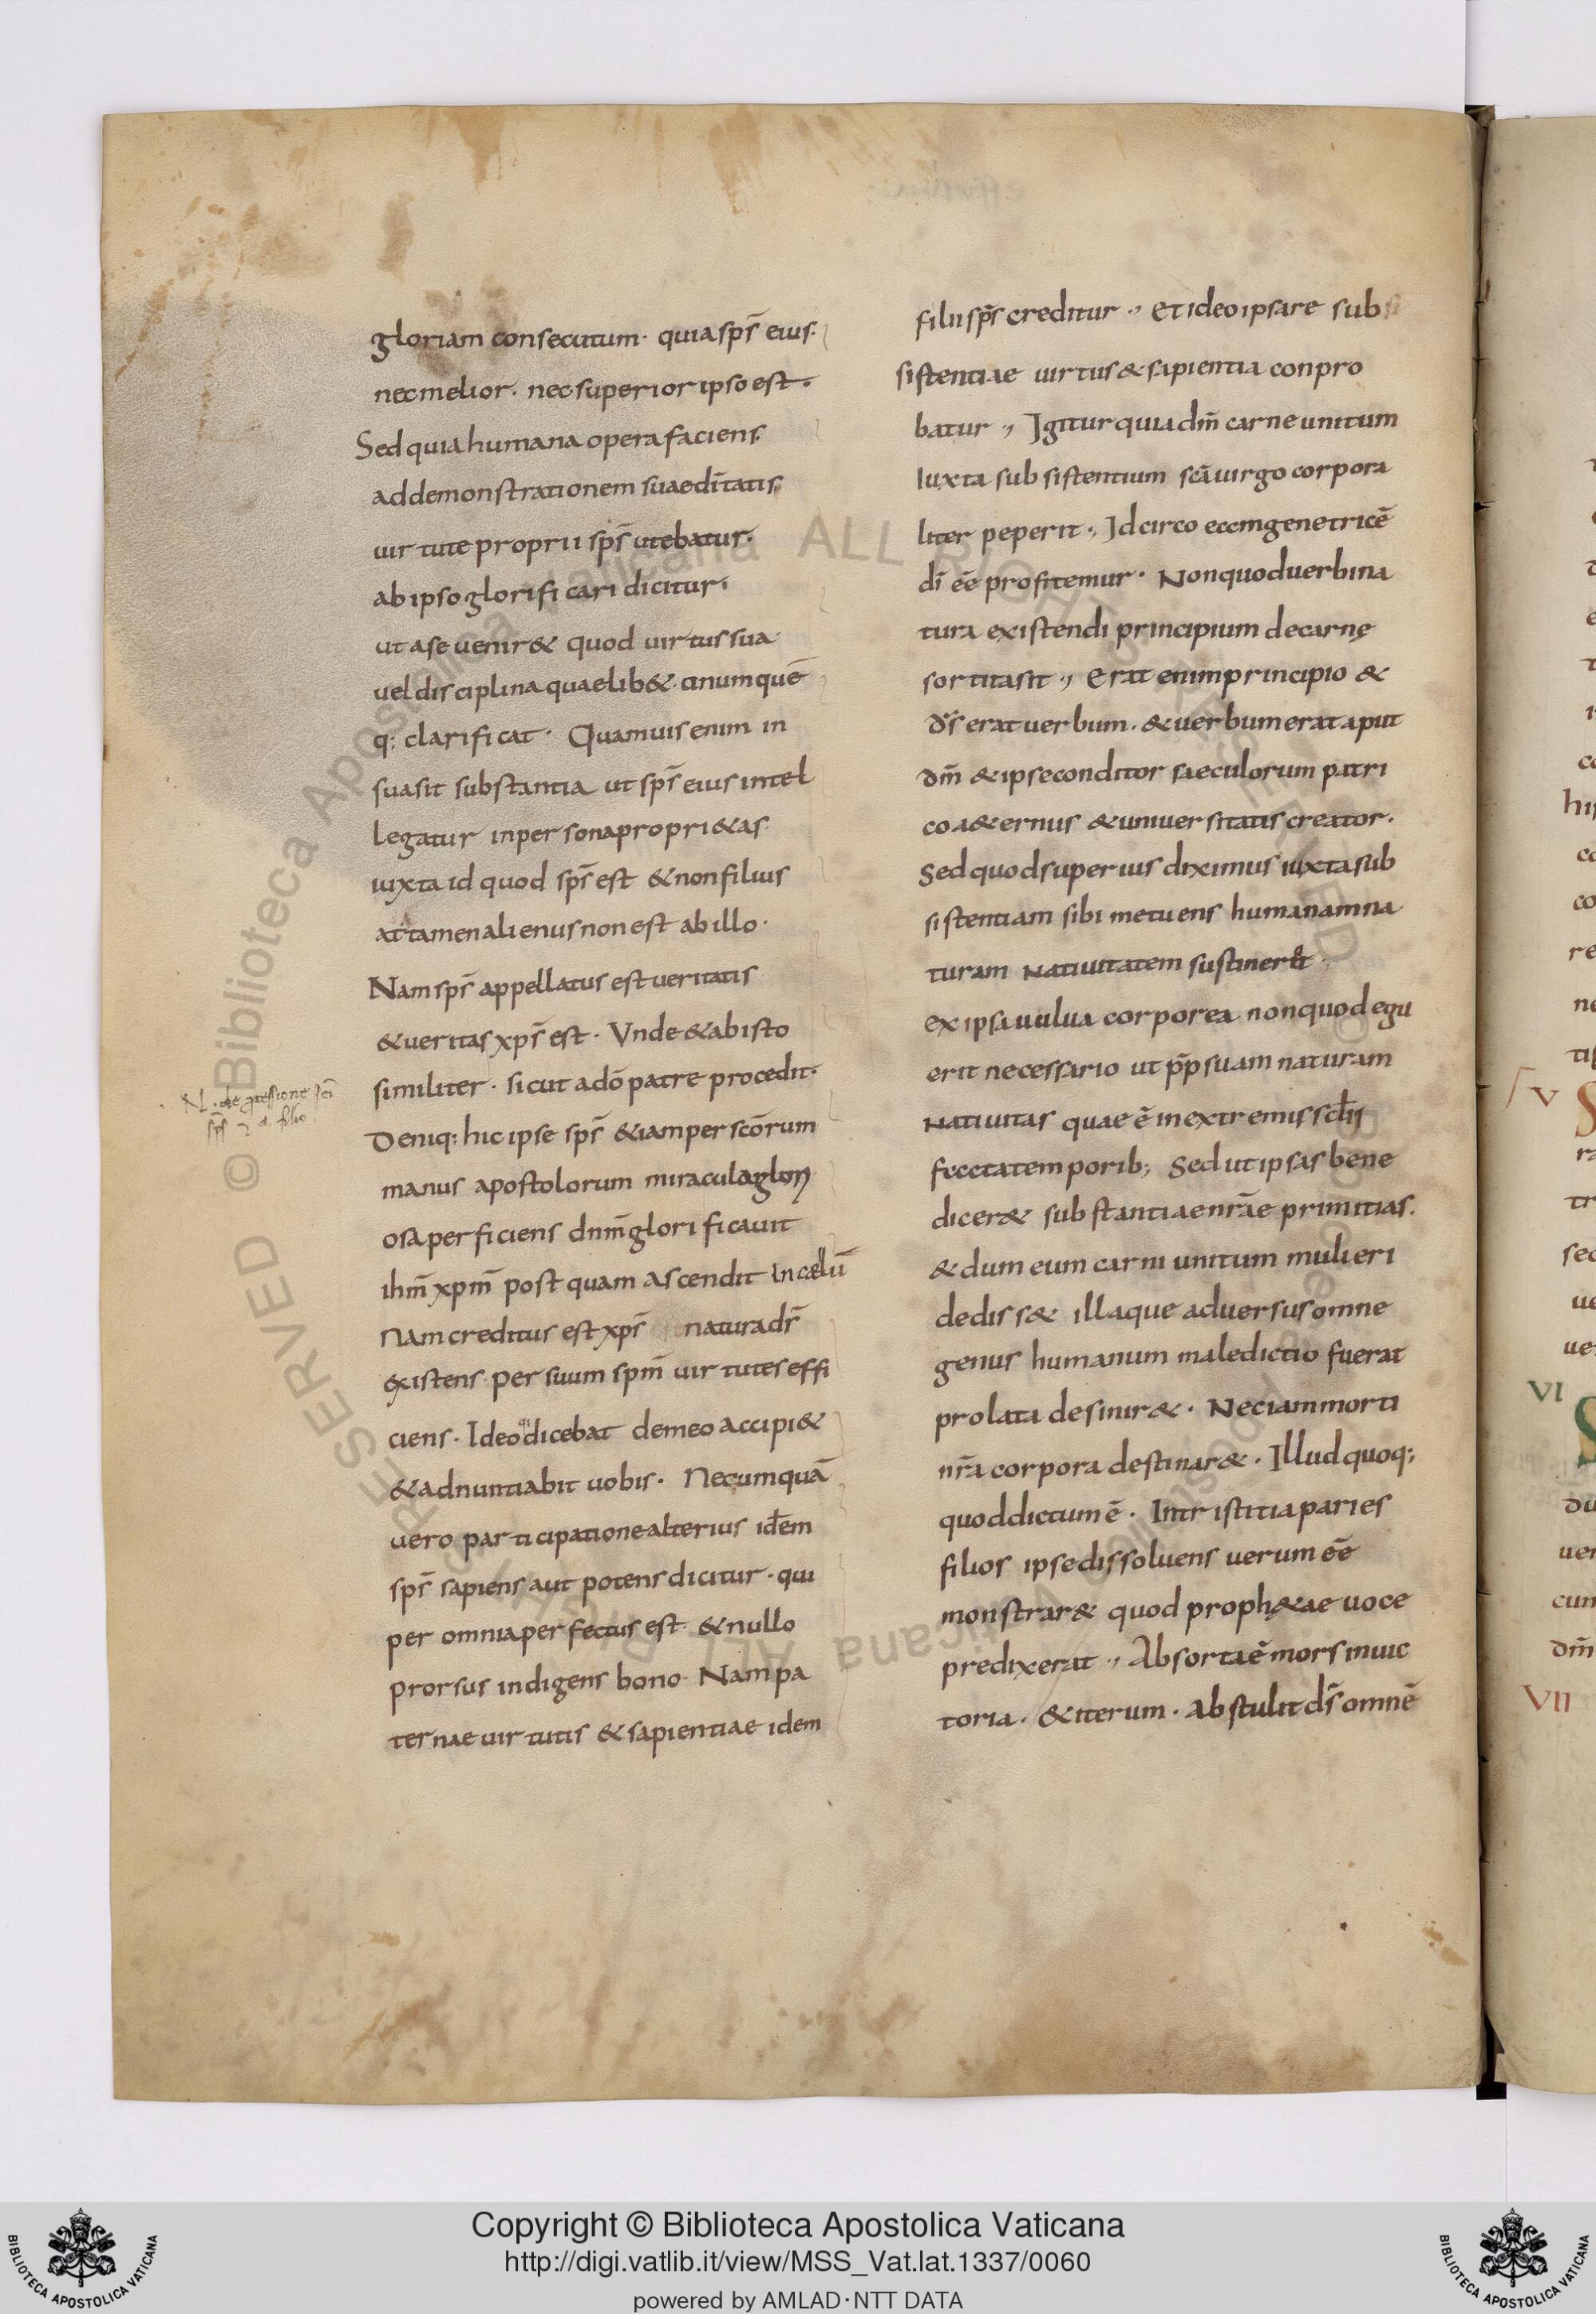 gloriam consecutum · quia sp̄s eius ·
nec melior · nec superior ipso est ·
Sed quia humana opera faciens
ad demonstrationem suae dītatis
uirtute proprii sp̄s utebatur ·
ab ipso glorificari dicitur ·
ut a se uenir& quod uirtus sua
uel disciplina quaelib& unumquē
q; clarificat · Quamuis enim in
sua sit substantia ut sp̄s eius intel
legatur in persona propri&as
iuxta id quod sp̄s est & non filius
attamen alienus non est ab illo ·
Nam sp̄s appellatus est ueritatis
& ueritas xp̄s est · Vnde & ab isto
similiter · sicut a dō patre procedit ·
Deniq; hic ipse sp̄s &iam per scōrum
manus apostolorum miracula glori
osa perficiens dnm̄ glorificauit
ihm̄ xpm̄ postquam ascendit in cælū
Nam creditus est xp̄s natura ds̄
existens per suum spm̄ uirtutes effi
ciens · Ideoq; dicebat de meo accipi&
& adnuntiabit uobis · Nequmquā
uero participatione alterius idem
sp̄s sapiens aut potens dicitur · qui
per omnia perfectus est · & nullo
prorsus indigens bono · Nam pa
ternae uirtutis & sapientiae idem
N. de qāessione sci
sps 2 a folio
filii sp̄s creditur ·, Et ideo ipsa re subs
sistentiae uirtus & sapientia conpro
batur ·, Igitur quia dm̄ carne unitum
Iuxta subsistentium scā uirgo corpora
liter peperit ·, Idcirco eam genetricē
dī eē profitemur · Non quod uerbi na
tura existendi principium de carnę
sortita sit ·, Erat enim principio &
ds̄ erat uerbum · & uerbum erat aput
dm̄ & ipse conditor saeculorum patri
coa&ernus & uniuersitatis creator ·
Sed quod superius diximus iuxta sub
sistentiam sibimet uens humanam na
turam natiuitatem sustinerit ·
ex ipsa uulua corporea non quod egu
erit necessario ut pp̄ suam naturam
natiuitas quae ē in extremis sclīi
facta temporib; Sed ut ipsas bene
dicer& substantiae nrāe primitias ·
& dum eum carni unitum mulieri
dediss& illa que aduersus omne
genus humanum maledictio fuerat
prolata desinir& · Nec iam morti
nrā corpora destinar& · Illud quoq;
quod dictum ē · In tristitia paries
filios ipse dissoluens uerum eē
monstrar& quod proph&ae uoce
predixerat ·, Absorta ē mors in uic
toria · & iterum · Abstulit ds̄ omnē
V
VI
VII
Copyright © Biblioteca Apostolica Vaticana
http://digi.vatlib.it/view/MSS_Vat.lat.1337/0060
powered by AMLAD·NTT DATA
BIBLIOTECA APOSTOLICA VATICANA
BIBLIOTECA APOSTOLICA VATICANA